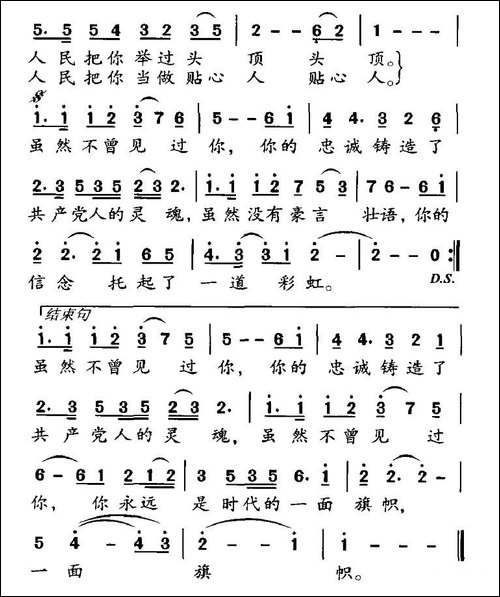 5. 5 5 4 3 2 3 5 | 2 - - 6 2 | 1 - - - |
人民把你举过头 顶 头 顶。}
人民把你当做贴心 人 贴心 人。}
1. 1 1 2 3 7 6 | 5 - - 6 1 | 4 4. 3 2 6 |
虽然不曾见 过 你, 你的 忠诚铸造了
2. 3 5 3 5 2 3 2. | 1. 1 1 2 7 5 3 | 7 6 - 6 1 |
共产党人的灵 魂,虽然没有豪言 壮语,你的
2 2. 2 1 6 5 | 4. 3 3 1 2 - | 2 - - 0 :|
信念 托起了 一道 彩虹。 D.S.
结束句
1. 1 1 2 3 7 5 | 5 - - 6 1 | 4 4. 3 2 1 |
虽然不曾见 过 你, 你的 忠诚铸造了
2. 3 5 3 5 2 3 2. | 1. 1 1 2 3 7 5 |
共产党人的灵 魂, 虽然不曾见 过
6 - 6 1 2 1 2 | 3 5 3 5 6. 1 | 2 2. 2 - |
你, 你永远 是时代的一面 旗帜,
5 4 - 4 3 | 2 - - 1 | 1 - - - ‖
一面 旗 帜。